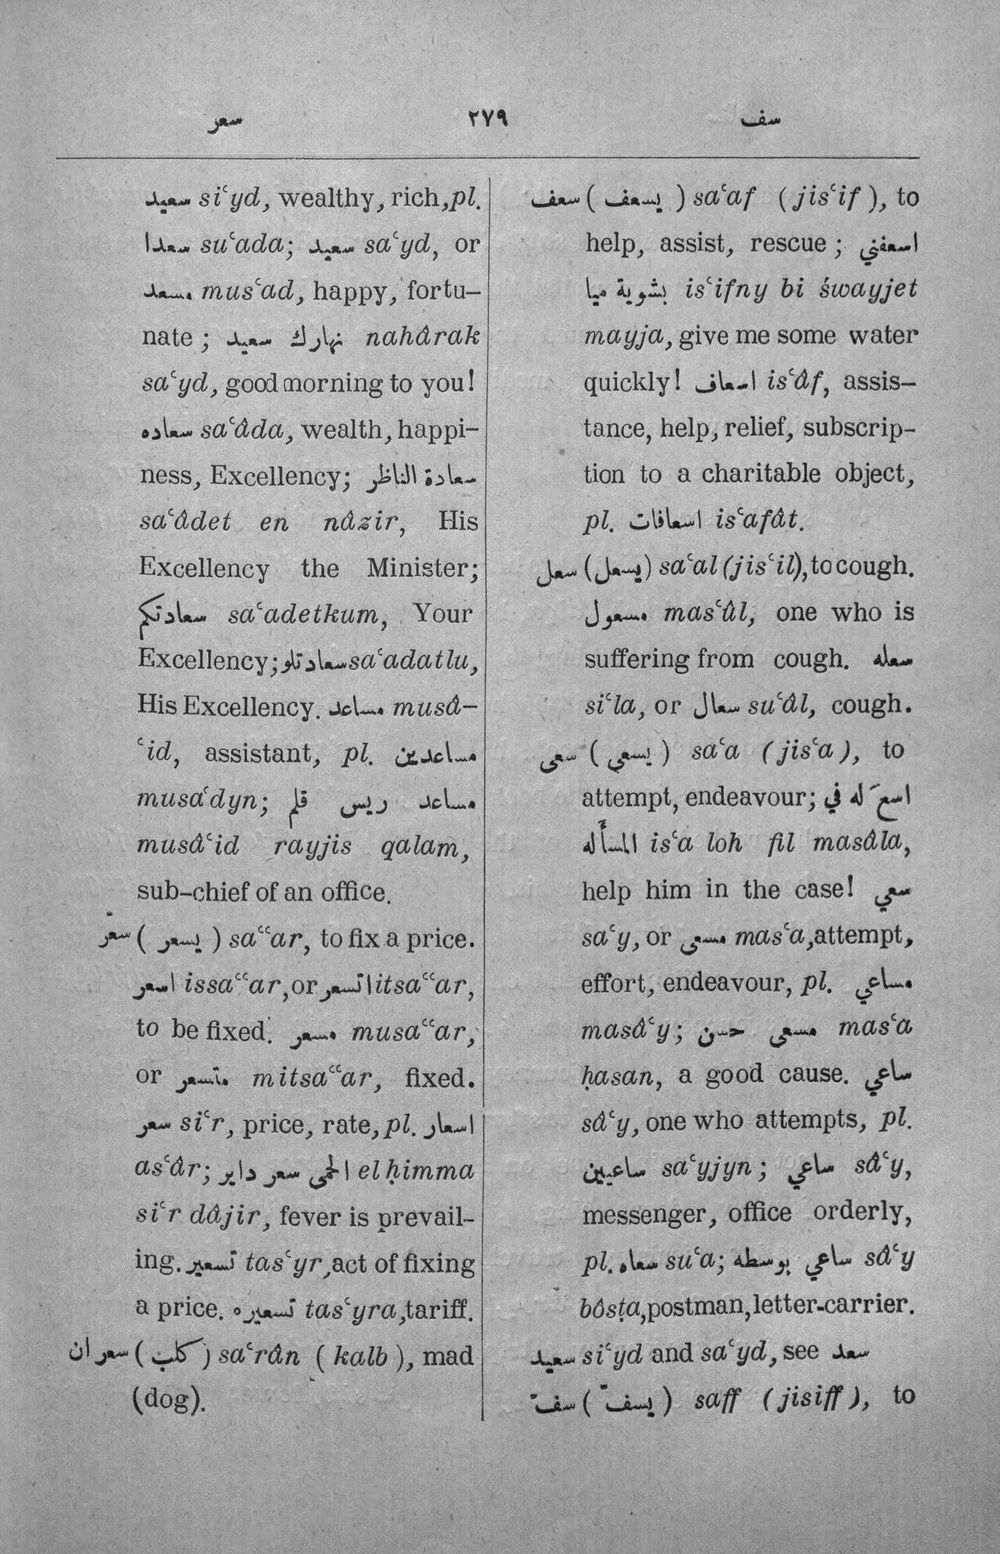 سعر ٢٧٩ سف
سعيد siʿyd, wealthy, rich, pl.
سعدا suʿada; سعيد saʿyd, or
مسعد musʿad, happy, fortu-
nate; نهارك سعيد nahârak
saʿyd, good morning to you!
سعاده saʿâda, wealth, happi-
ness, Excellency; سعادة الناظر
saʿâdet en nâzir, His
Excellency the Minister;
سعادتكم saʿadetkum, Your
Excellency; سعادتلو saʿadatlu,
His Excellency. مساعد musâ-
ʿid, assistant, pl. مساعدين
musaʿdyn; مساعد ريس قلم
musâʿid rayjis qalam,
sub-chief of an office.
سعّر ( يسعر ) saʿʿar, to fix a price.
اسعر issaʿʿar, or اتسعر itsaʿʿar,
to be fixed. مسعر musaʿʿar,
or متسعر mitsaʿʿar, fixed.
سعر siʿr, price, rate, pl. اسعار
asʿâr; الحمى سعر داير el ḥimma
siʿr dâjir, fever is prevail-
ing. تسعير tasʿyr, act of fixing
a price. تسعيره tasʿyra, tariff.
سعران ( كلب ) saʿrân ( kalb ), mad
(dog).
سعف ( يسعف ) saʿaf ( jisʿif ), to
help, assist, rescue; اسعفني
بشوية ميا isʿifny bi śwayjet
mayja, give me some water
quickly! اسعاف isʿâf, assis-
tance, help, relief, subscrip-
tion to a charitable object,
pl. اسعافات isʿafât.
سعل (يسعل) saʿal (jisʿil), to cough.
مسعول masʿûl, one who is
suffering from cough. سعله
siʿla, or سعال suʿâl, cough.
سعى ( يسعي ) saʿa ( jisʿa ), to
attempt, endeavour; اسعَ له في
المسأله isʿa loh fil masâla,
help him in the case! سعي
saʿy, or مسعى masʿa, attempt,
effort, endeavour, pl. مساعي
masâʿy; مسعى حسن masʿa
ḥasan, a good cause. ساعي
sâʿy, one who attempts, pl.
ساعيين saʿyjyn; ساعي sâʿy,
messenger, office orderly,
pl. سعاه suʿa; ساعي بوسطه sâʿy
bôsṭa, postman, letter-carrier.
سعيد siʿyd and saʿyd, see سعد
سفّ ( يسفّ ) saff ( jisiff ), to